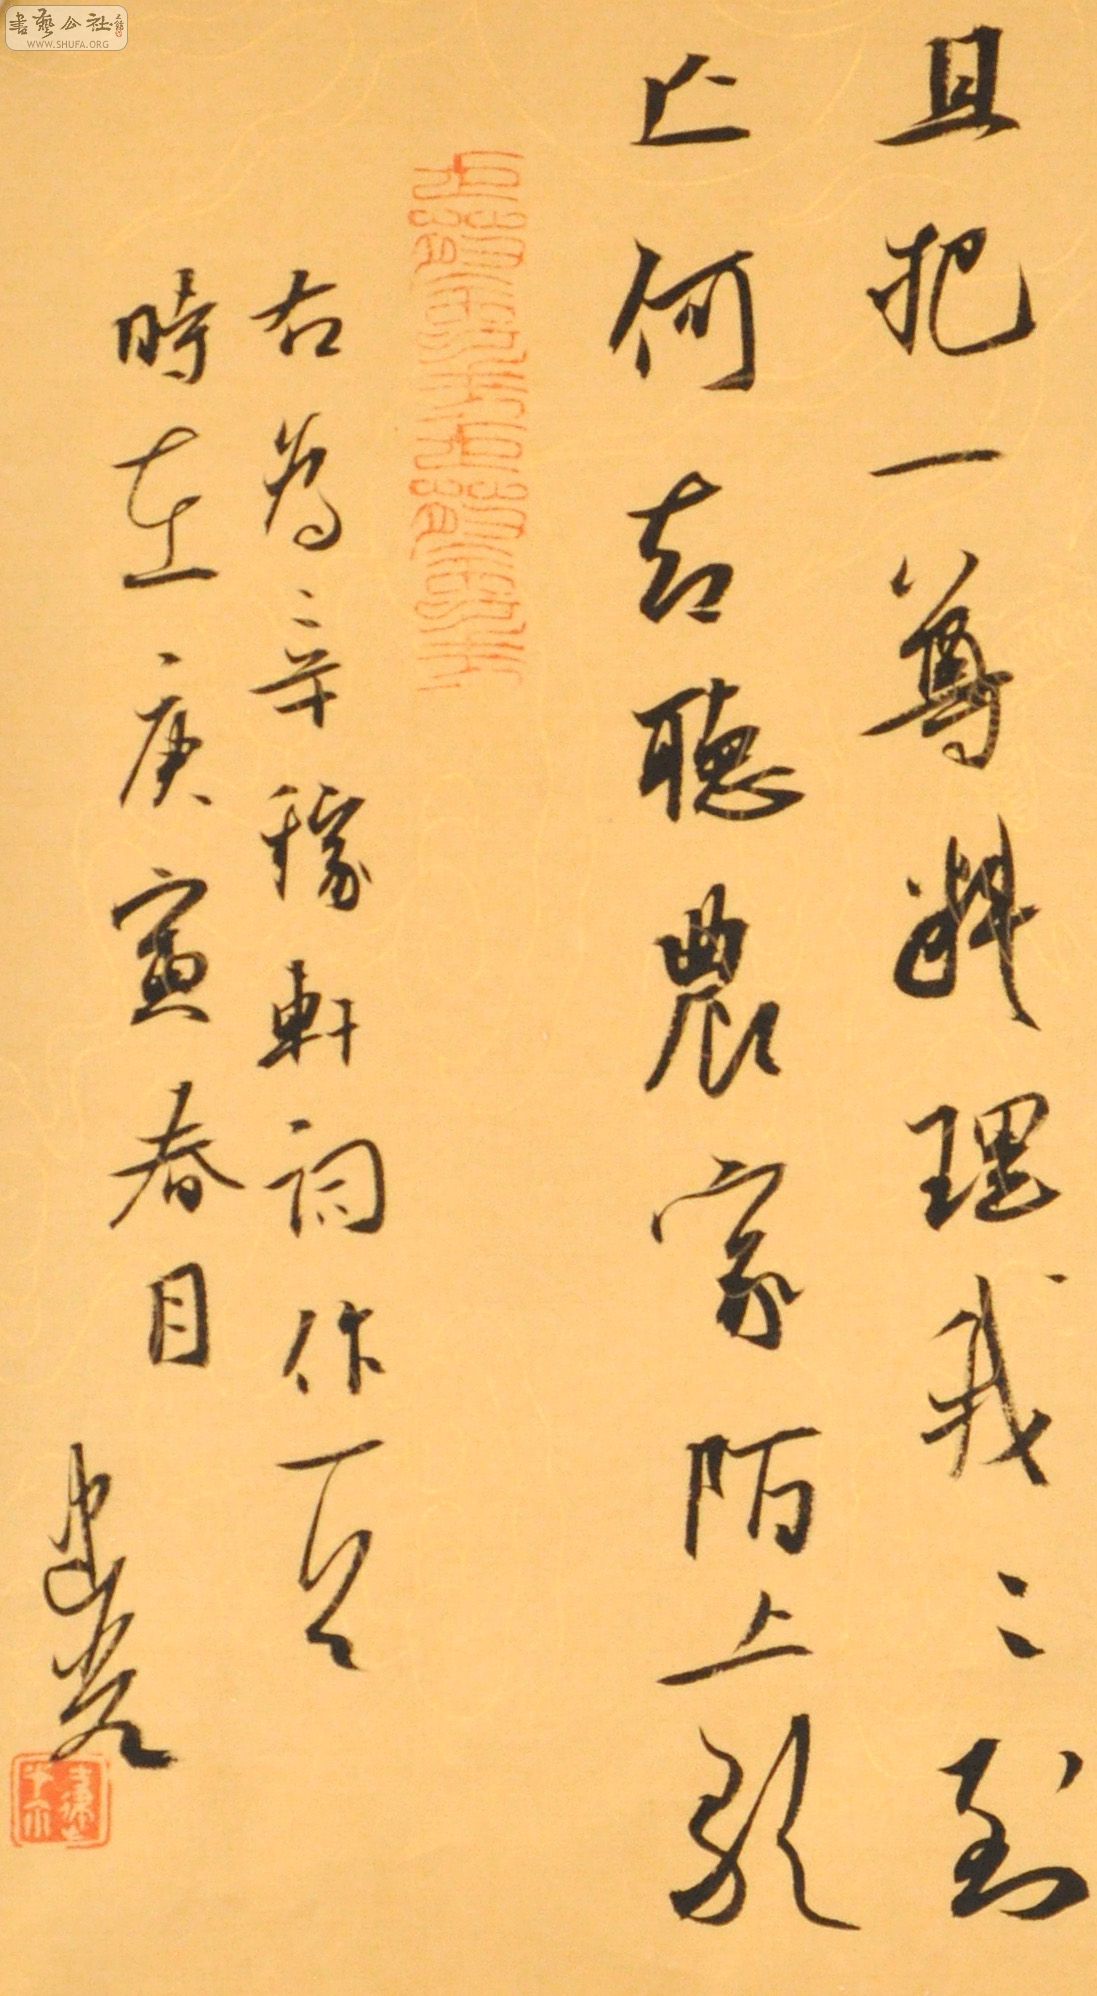 且把一尊料理我二到
亡何却聽農家陌上歌
右為辛稼軒詞作一首
時在庚寅春日
書藝公社
WWW.SHUFA.ORG